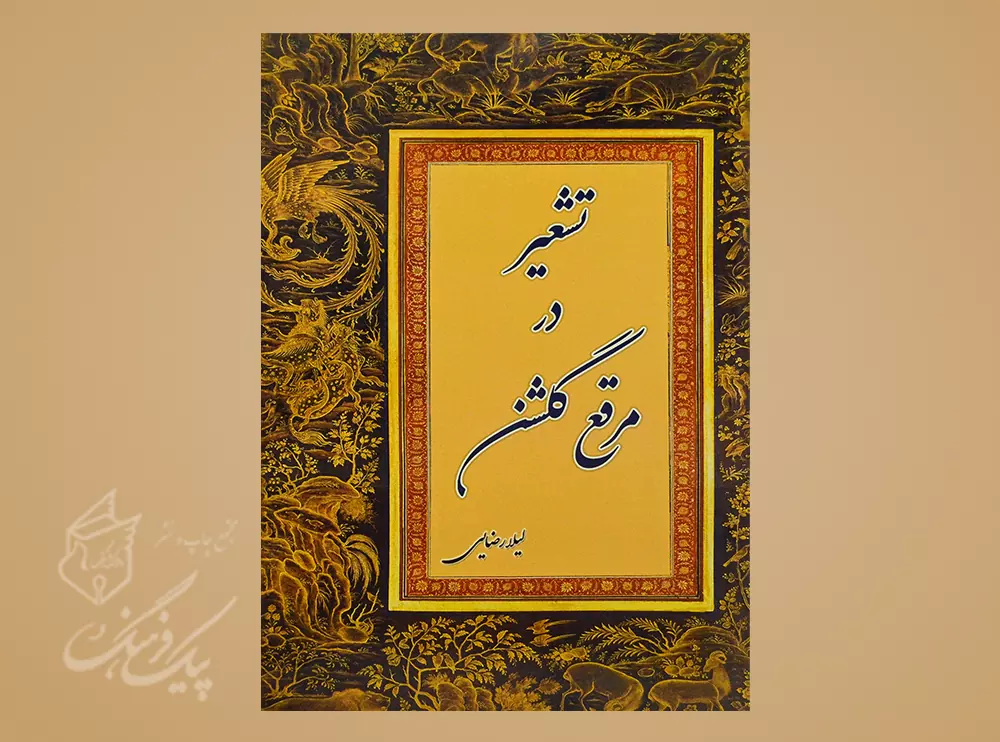 تشعیر
در
مرقع گلشن
لیلا رضایی
مجمع چاپ و نشر
پیک فرهنگ